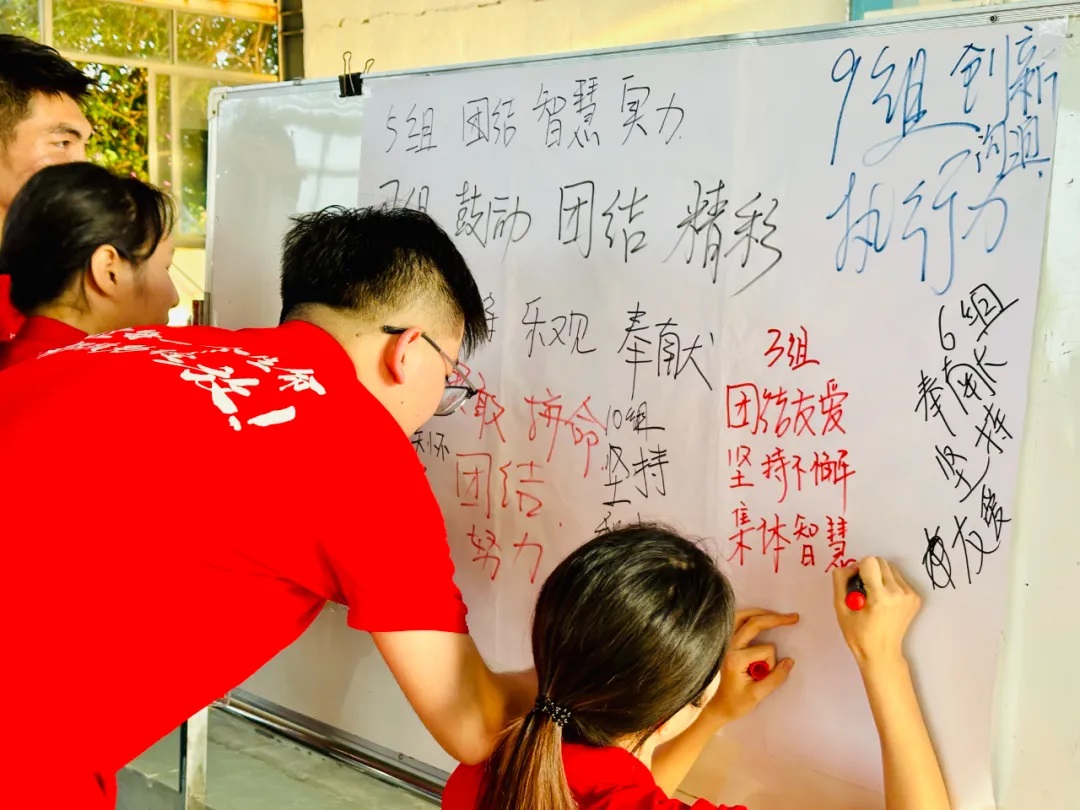 5组 团结 智慧 实力
组 鼓励 团结 精彩
乐观 奉献
取 拼命
团结
努力
10组
坚持
3组
团结友爱
坚持不懈
集体智慧
9组 创新
执行力
6组
奉献
坚持
友爱